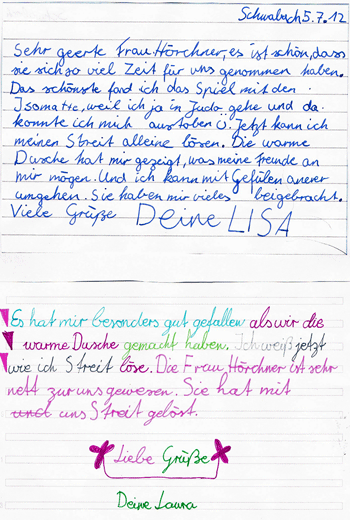 Schwabach 5.7.12
Sehr geerte Frau Hörchner, es ist schön, dass
sie sich so viel Zeit für uns genommen haben.
Das schönste fand ich das Spiel mit den
Isomatte, weil ich ja in Judo gehe und da
konnte ich mich austoben Ü. Jetzt kann ich
meinen Streit alleine lösen. Die warme
Dusche hat mir gezeigt, was meine Freunde an
mir mögen. Und ich kann mit Gefülen anerer
umgehen. Sie haben mir vieles beigebracht.
Viele Grüße Deine LISA
Es hat mir besonders gut gefallen als wir die
warme Dusche gemacht haben. Ich weiß jetzt
wie ich Streit löse. Die Frau Hörchner ist sehr
nett zur uns gewesen. Sie hat mit
und uns Streit gelöst.
Liebe Grüße
Deine Laura